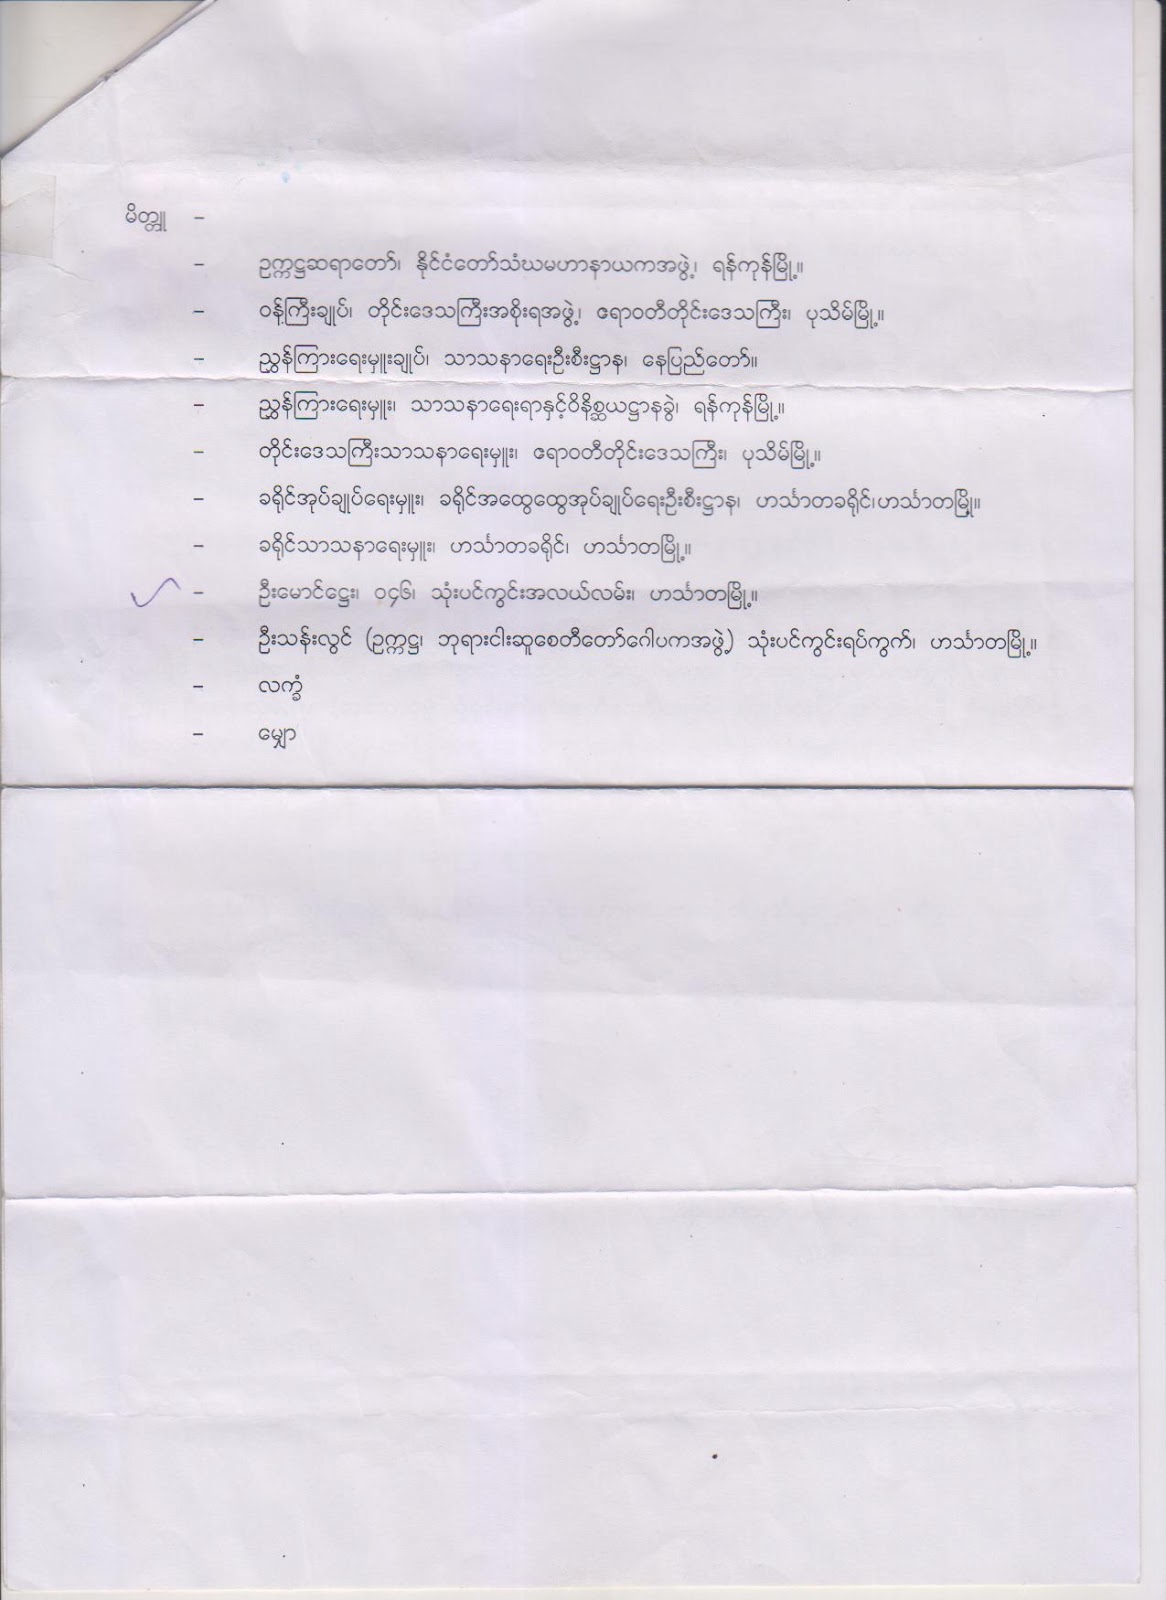 မိတ္တူ -
- ဥက္ကဋ္ဌဆရာတော်၊ နိုင်ငံတော်သံဃမဟာနာယကအဖွဲ့၊ ရန်ကုန်မြို့။
- ဝန်ကြီးချုပ်၊ တိုင်းဒေသကြီးအစိုးရအဖွဲ့၊ ဧရာဝတီတိုင်းဒေသကြီး၊ ပုသိမ်မြို့။
- ညွှန်ကြားရေးမှူးချုပ်၊ သာသနာရေးဦးစီးဌာန၊ နေပြည်တော်။
- ညွှန်ကြားရေးမှူး၊ သာသနာရေးရာနှင့်ဝိနိစ္ဆယဌာနခွဲ၊ ရန်ကုန်မြို့။
- တိုင်းဒေသကြီးသာသနာရေးမှူး၊ ဧရာဝတီတိုင်းဒေသကြီး၊ ပုသိမ်မြို့။
- ခရိုင်အုပ်ချုပ်ရေးမှူး၊ ခရိုင်အထွေထွေအုပ်ချုပ်ရေးဦးစီးဌာန၊ ဟင်္သာတခရိုင်၊ဟင်္သာတမြို့။
- ခရိုင်သာသနာရေးမှူး၊ ဟင်္သာတခရိုင်၊ ဟင်္သာတမြို့။
- ဦးမောင်ဌေး၊ ၀၄၆၊ သုံးပင်ကွင်းအလယ်လမ်း၊ ဟင်္သာတမြို့။
- ဦးသန်းလွင် (ဥက္ကဋ္ဌ၊ ဘုရားငါးဆူစေတီတော်ဂေါပကအဖွဲ့) သုံးပင်ကွင်းရပ်ကွက်၊ ဟင်္သာတမြို့။
- လက်ခံ
- မျှော